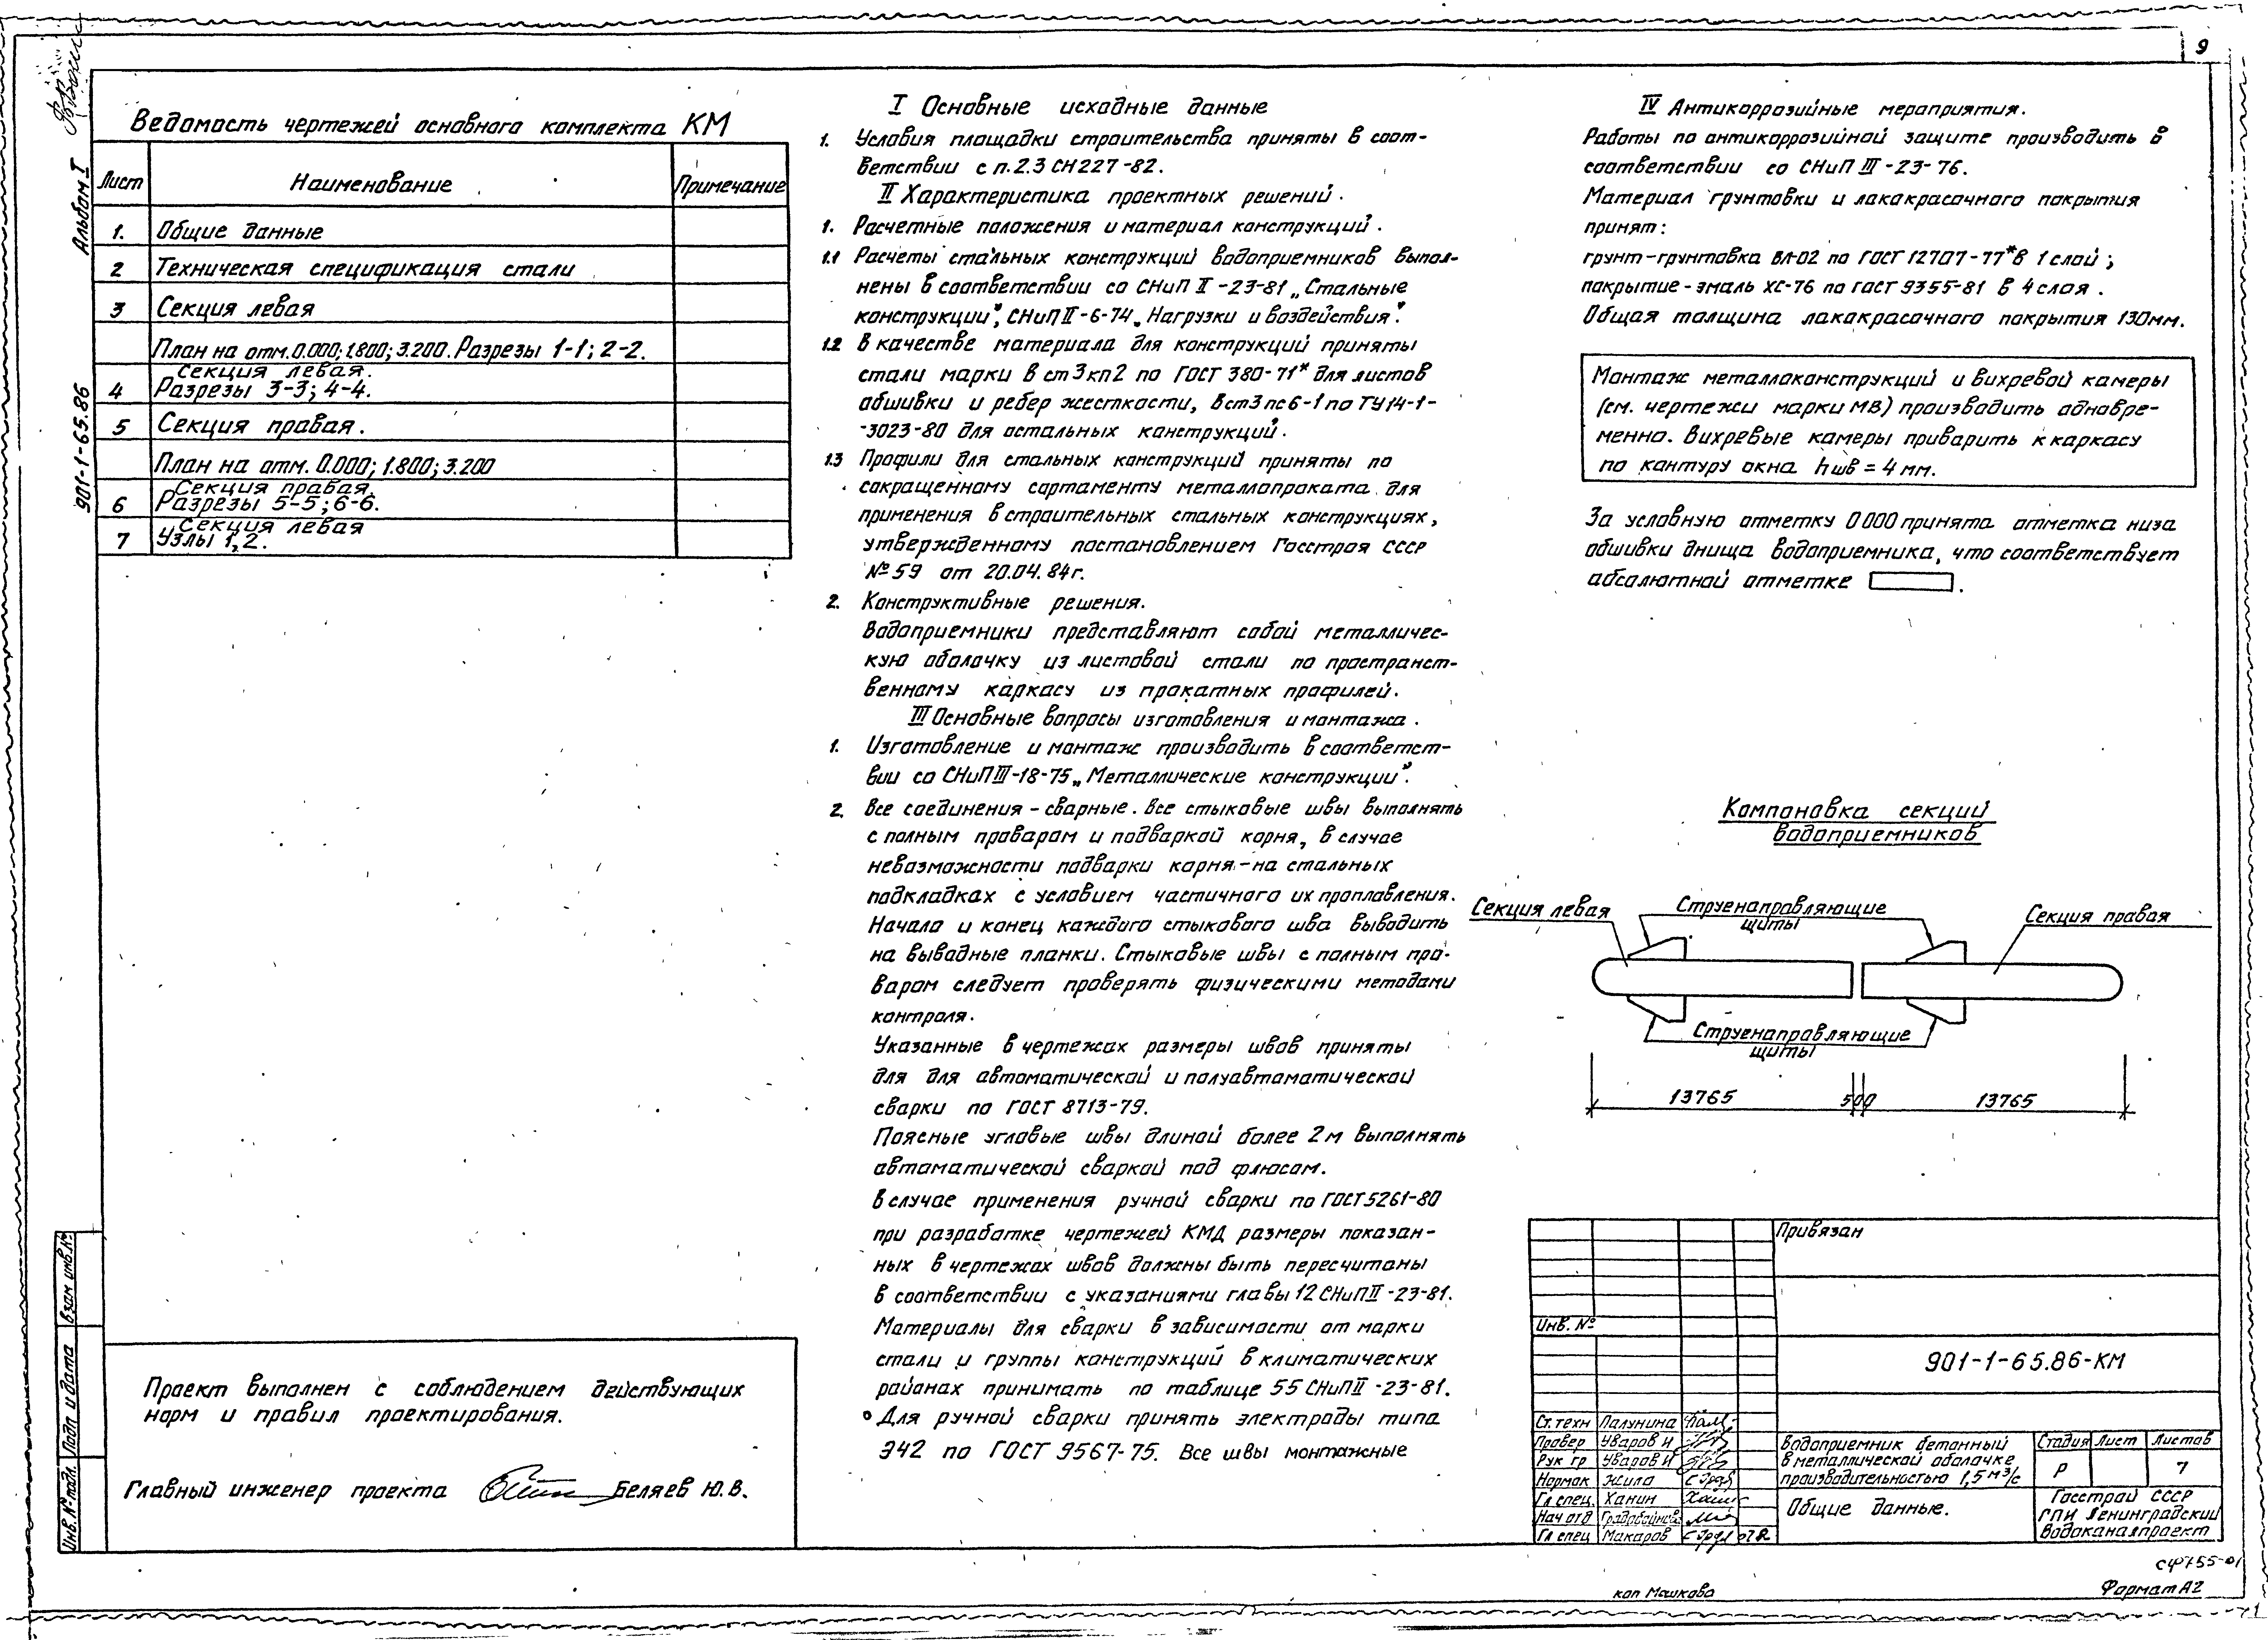 9
Альбом I
901-1-65.86
Ведомость чертежей основного комплекта КМ
Лист Наименование Примечание
1. Общие данные
2 Техническая спецификация стали
3 Секция левая
План на отм. 0.000; 1.800; 3.200. Разрезы 1-1; 2-2.
Секция левая.
4 Разрезы 3-3; 4-4.
5 Секция правая.
План на отм. 0.000; 1.800; 3.200
Секция правая.
6 Разрезы 5-5; 6-6.
Секция левая
7 Узлы 1, 2.
Проект выполнен с соблюдением действующих
норм и правил проектирования.
Главный инженер проекта Беляев Ю.В.
Взам инв.№
Подп и дата
Инв.№ подл.
I Основные исходные данные
1. Условия площадки строительства приняты в соот-
ветствии с п.2.3 СН 227-82.
II Характеристика проектных решений.
1. Расчетные положения и материал конструкций.
1.1 Расчеты стальных конструкций водоприемников выпол-
нены в соответствии со СНиП II-23-81 „Стальные
конструкции", СНиП II-6-74 „Нагрузки и воздействия".
1.2 В качестве материала для конструкций приняты
стали марки В ст 3 кп 2 по ГОСТ 380-71* для листов
обшивки и ребер жесткости, Вст3пс6-1 по ТУ14-1-
-3023-80 для остальных конструкций.
1.3 Профили для стальных конструкций приняты по
сокращенному сортаменту металлопроката для
применения в строительных стальных конструкциях,
утвержденному постановлением Госстроя СССР
№59 от 20.04.84г.
2. Конструктивные решения.
Водоприемники представляют собой металличес-
кую оболочку из листовой стали по пространст-
венному каркасу из прокатных профилей.
III Основные вопросы изготовления и монтажа.
1. Изготовление и монтаж производить в соответст-
вии со СНиП III-18-75 „Металлические конструкции".
2. Все соединения - сварные. Все стыковые швы выполнять
с полным проваром и подваркой корня, в случае
невозможности подварки корня - на стальных
подкладках с условием частичного их проплавления.
Начало и конец каждого стыкового шва выводить
на выводные планки. Стыковые швы с полным про-
варом следует проверять физическими методами
контроля.
Указанные в чертежах размеры швов приняты
для для автоматической и полуавтоматической
сварки по ГОСТ 8713-79.
Поясные угловые швы длиной более 2 м выполнять
автоматической сваркой под флюсом.
В случае применения ручной сварки по ГОСТ 5261-80
при разработке чертежей КМД размеры показан-
ных в чертежах швов должны быть пересчитаны
в соответствии с указаниями главы 12 СНиП II-23-81.
Материалы для сварки в зависимости от марки
стали и группы конструкций в климатических
районах принимать по таблице 55 СНиП II-23-81.
Для ручной сварки принять электроды типа
Э42 по ГОСТ 9567-75. Все швы монтажные
IV Антикоррозийные мероприятия.
Работы по антикоррозийной защите производить в
соответствии со СНиП III-23-76.
Материал грунтовки и лакокрасочного покрытия
принят:
грунт-грунтовка ВЛ-02 по ГОСТ 12707-77* в 1 слой;
покрытие-эмаль ХС-76 по ГОСТ 9355-81 в 4 слоя.
Общая толщина лакокрасочного покрытия 130мм.
Монтаж металлоконструкций и вихревой камеры
(см. чертежи марки МВ) производить одновре-
менно. Вихревые камеры приварить к каркасу
по контуру окна hшв = 4 мм.
За условную отметку 0 000 принята отметка низа
обшивки днища водоприемника, что соответствует
абсолютной отметке .
Компоновка секций
водоприемников
Секция левая
Струенаправляющие
щиты
Секция правая
Струенаправляющие
щиты
13765 500 13765
Привязан
Инв. №
901-1-65.86-КМ
Ст.техн Палунина
Провер Уваров И
Рук гр Уваров И
Нормок Жила
Гл спец. Ханин
Нач отд
Гл спец Макаров
Водоприемник бетонный
в металлической оболочке
производительностью 1,5 м³/с
Стадия Лист Листов
Р 7
Общие данные.
Госстрой СССР
ГПИ Ленинградский
Водоканалпроект
СФ755-01
коп Машкова
Формат А2